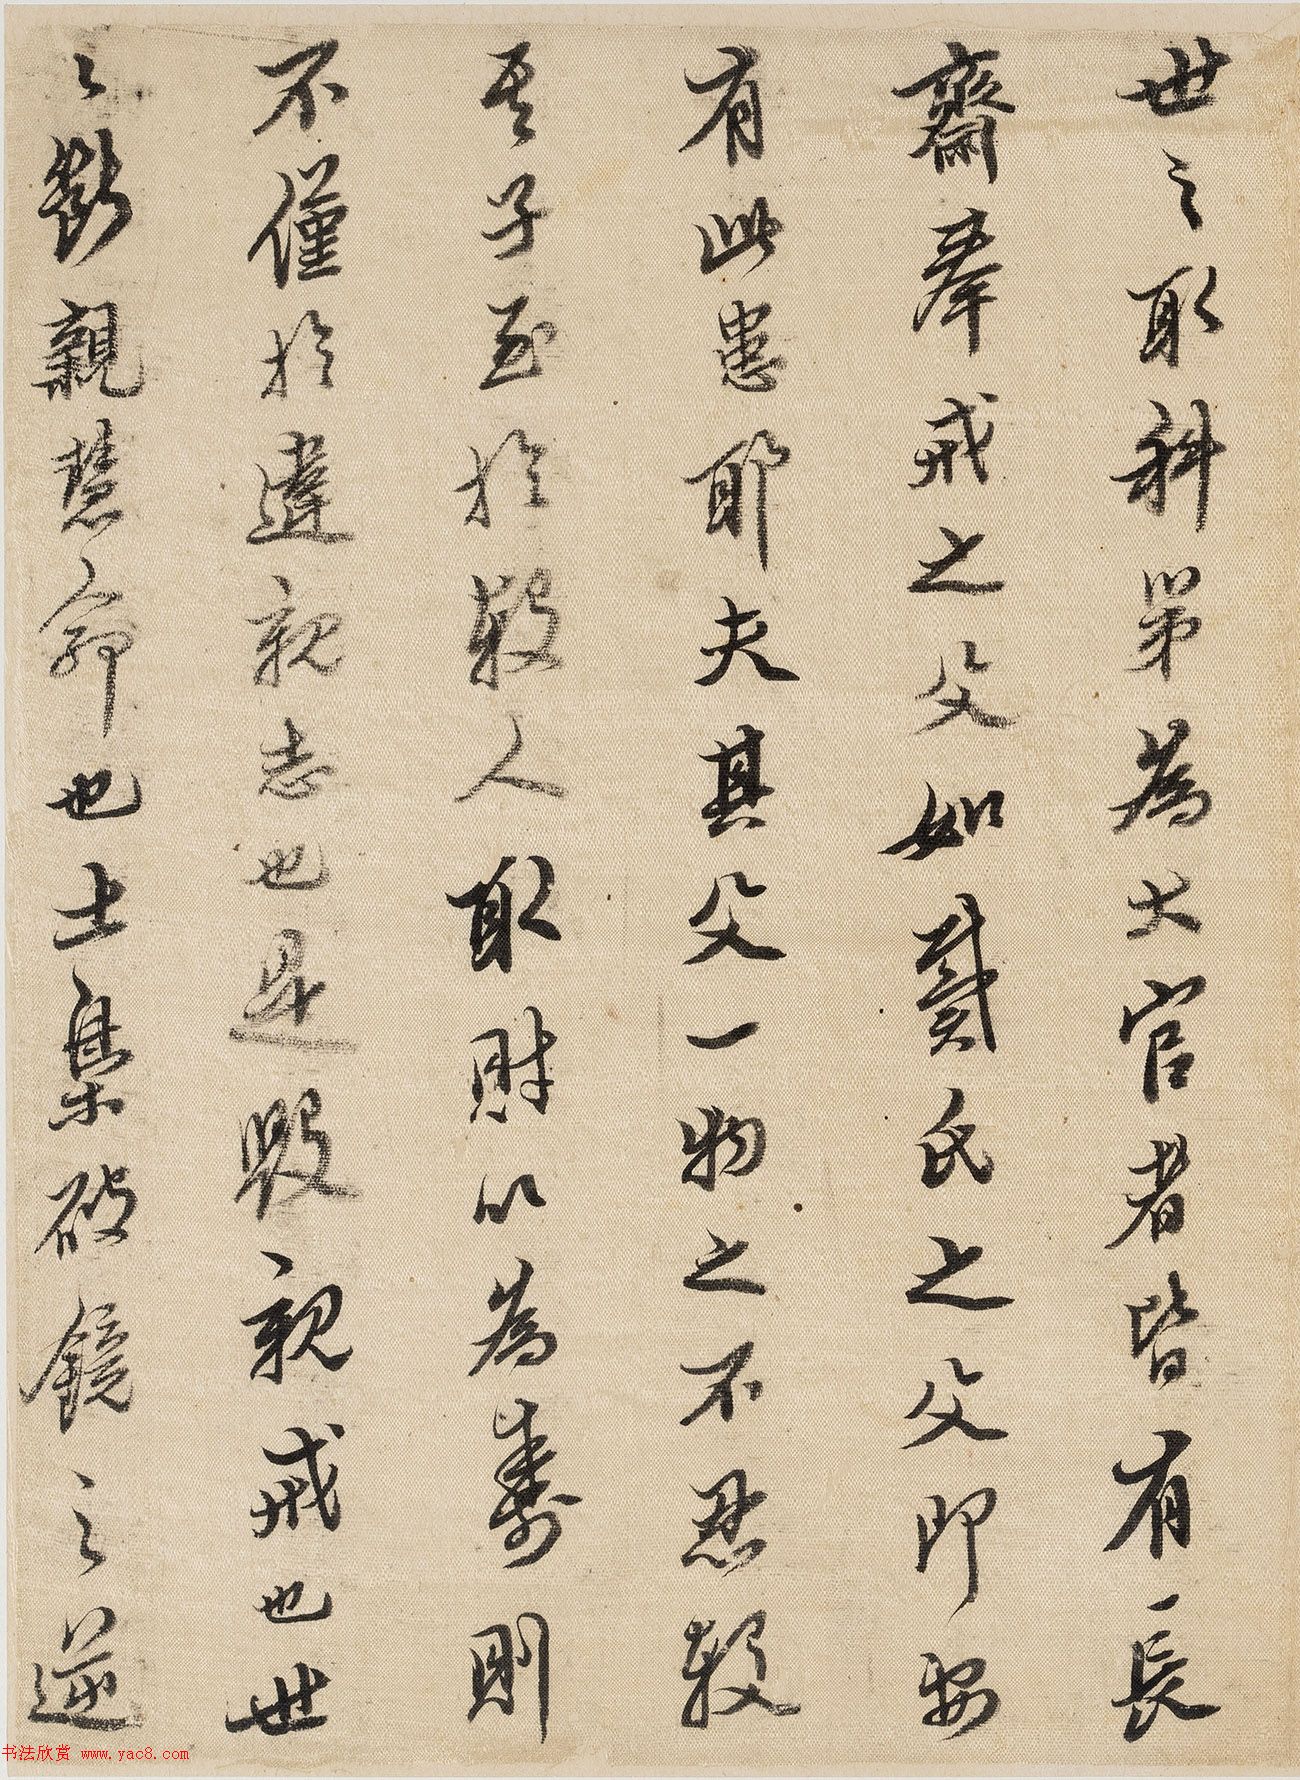 世之取科第為大官者皆有一長
齋奉戒之父如戴氏之父即安
有此患耶夫其父一物之不忍殺
吾子至於殺人取財以為壽則
不僅於違親志也是毀親戒也世
之斷親慧命也土梟破鏡之逆
书法欣赏 www.yac8.com